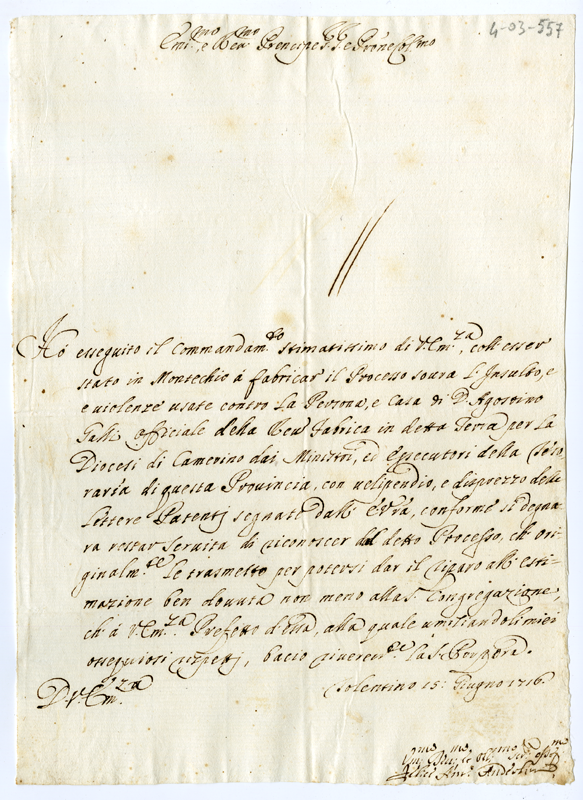 4-03-557
Em.mo, e Rev.mo Prencipe S.re e P'rone Col.mo
Hò esseguito il Commandam.to stimatissimo di V. Em.za, coll'esser
stato in Montechio à fabricar il Processo soura l'Insulto, e
e violenze usate contro la Persona, e Casa di D. Agostino
Galli officiale della Reu. Fabrica in detta Terra per la
Diocesi di Camerino dai Ministri, ed Essecutori della
raria di questa Provincia, con uelipendio, e disprezzo delle
Lettere Patenti segnate dall' E. V.ra, conforme si degna-
ra restar seruita di riconoscer dal detto Processo, ch' ori-
ginalm.te Le trasmetto per potersi dar il riparo all' esti-
mazione ben douuta non meno alla S. Congregazione,
ch' à V. Em.za Prefetto d'essa, alla quale umiliando li miei
ossequiosi rispetti, bacio riverent.e la S. Porpora.
D. V. Em.za
Tolentino 15: Giugno 1716.